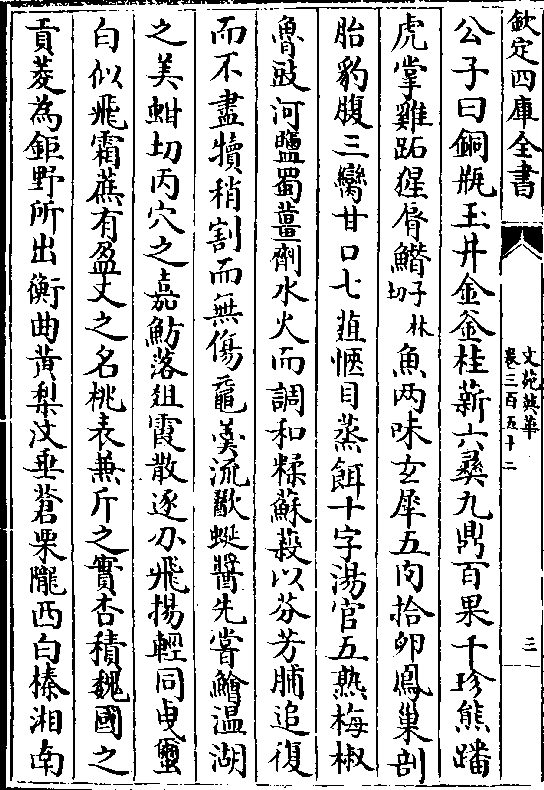 欽定四庫全書
文苑英華
卷三百五十二
三
公子曰銅瓶玉井金釜桂薪六彞九鼎百果千珍熊蹯
虎掌雞跖猩脣䲙子林切魚两味玄犀五肉拾卵鳳巢剖
胎豹腹三臠甘口七葅愜目蒸餌十字湯官五熟梅椒
魯豉河鹽蜀薑劑水火而調和糅蘇蔱以芬芳脯追復
而不盡犢稍割而無傷黿羮流歠蜒醬先嘗鱠温湖
之美蚶切丙穴之嘉魴落俎霞散逐刃飛揚輕同曳𠮓
白似飛霜蔗有盈丈之名桃表兼斤之實杏積魏國之
貢菱為鉅野所出衡曲黄梨汶垂蒼栗隴西白榛湘南